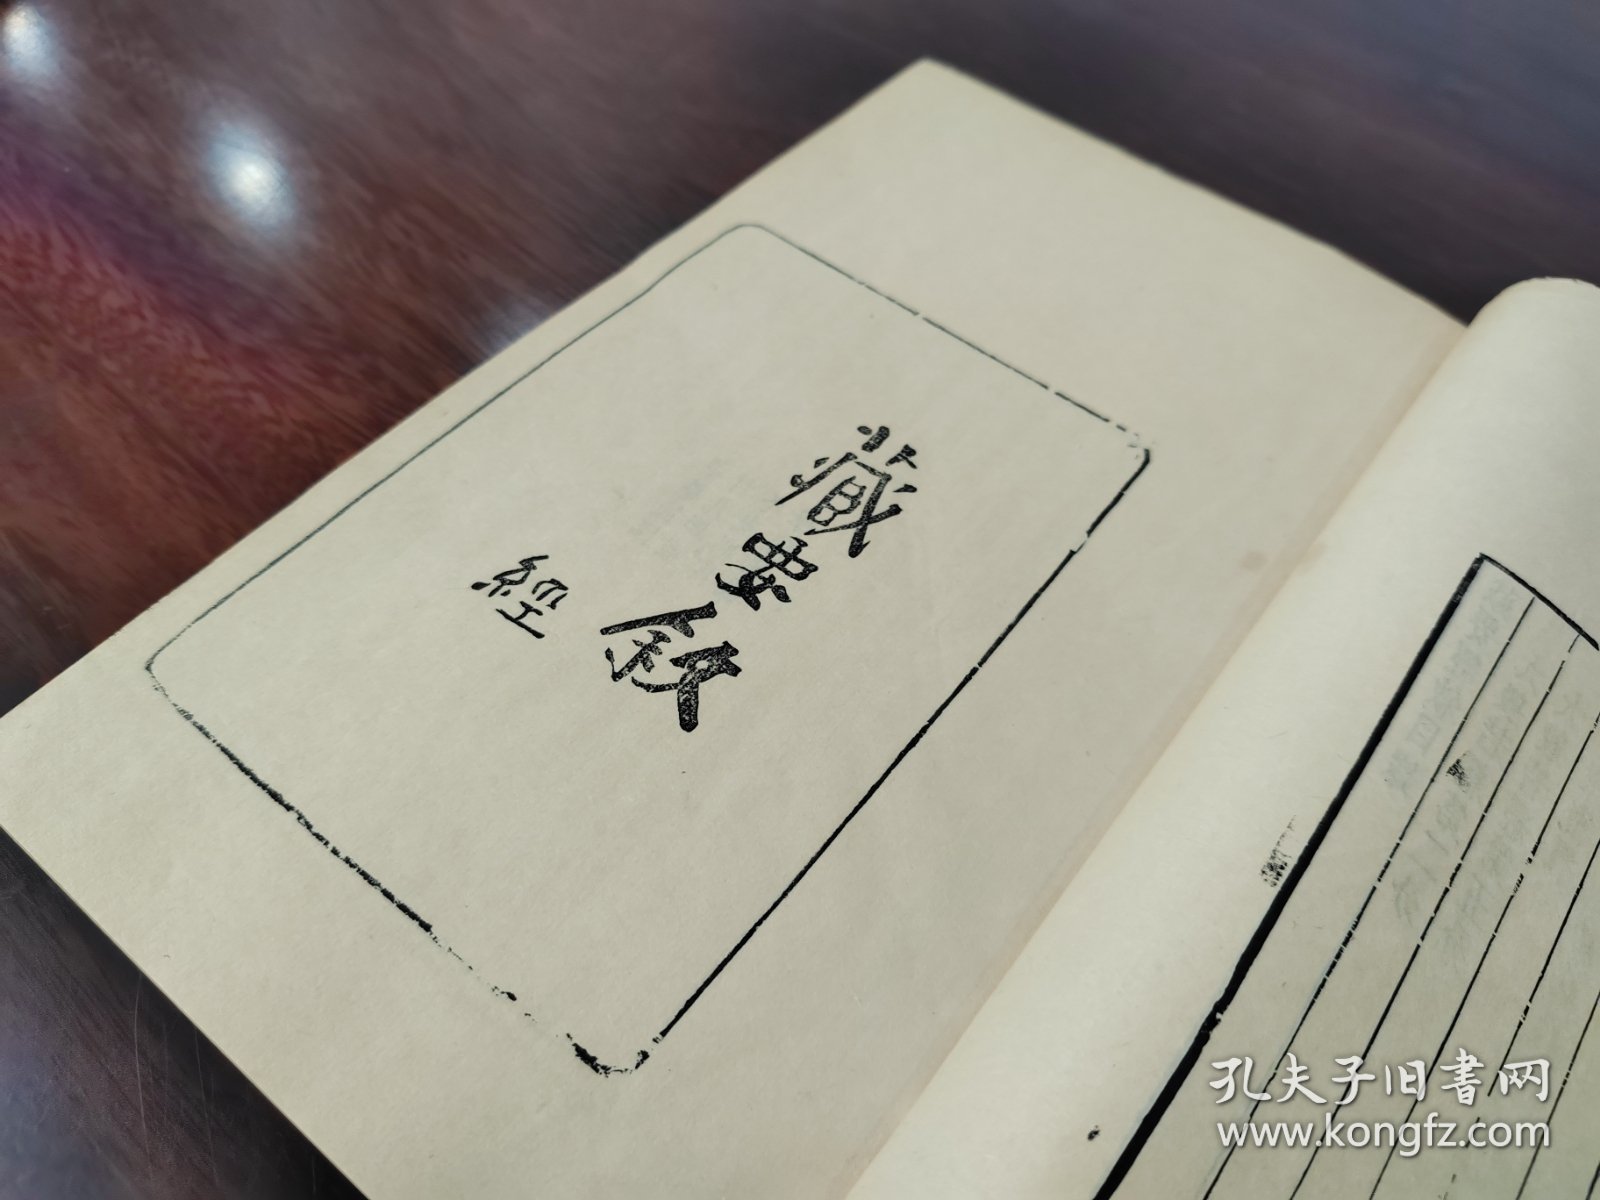 藏要敘
經
孔夫子旧书网
www.kongfz.com